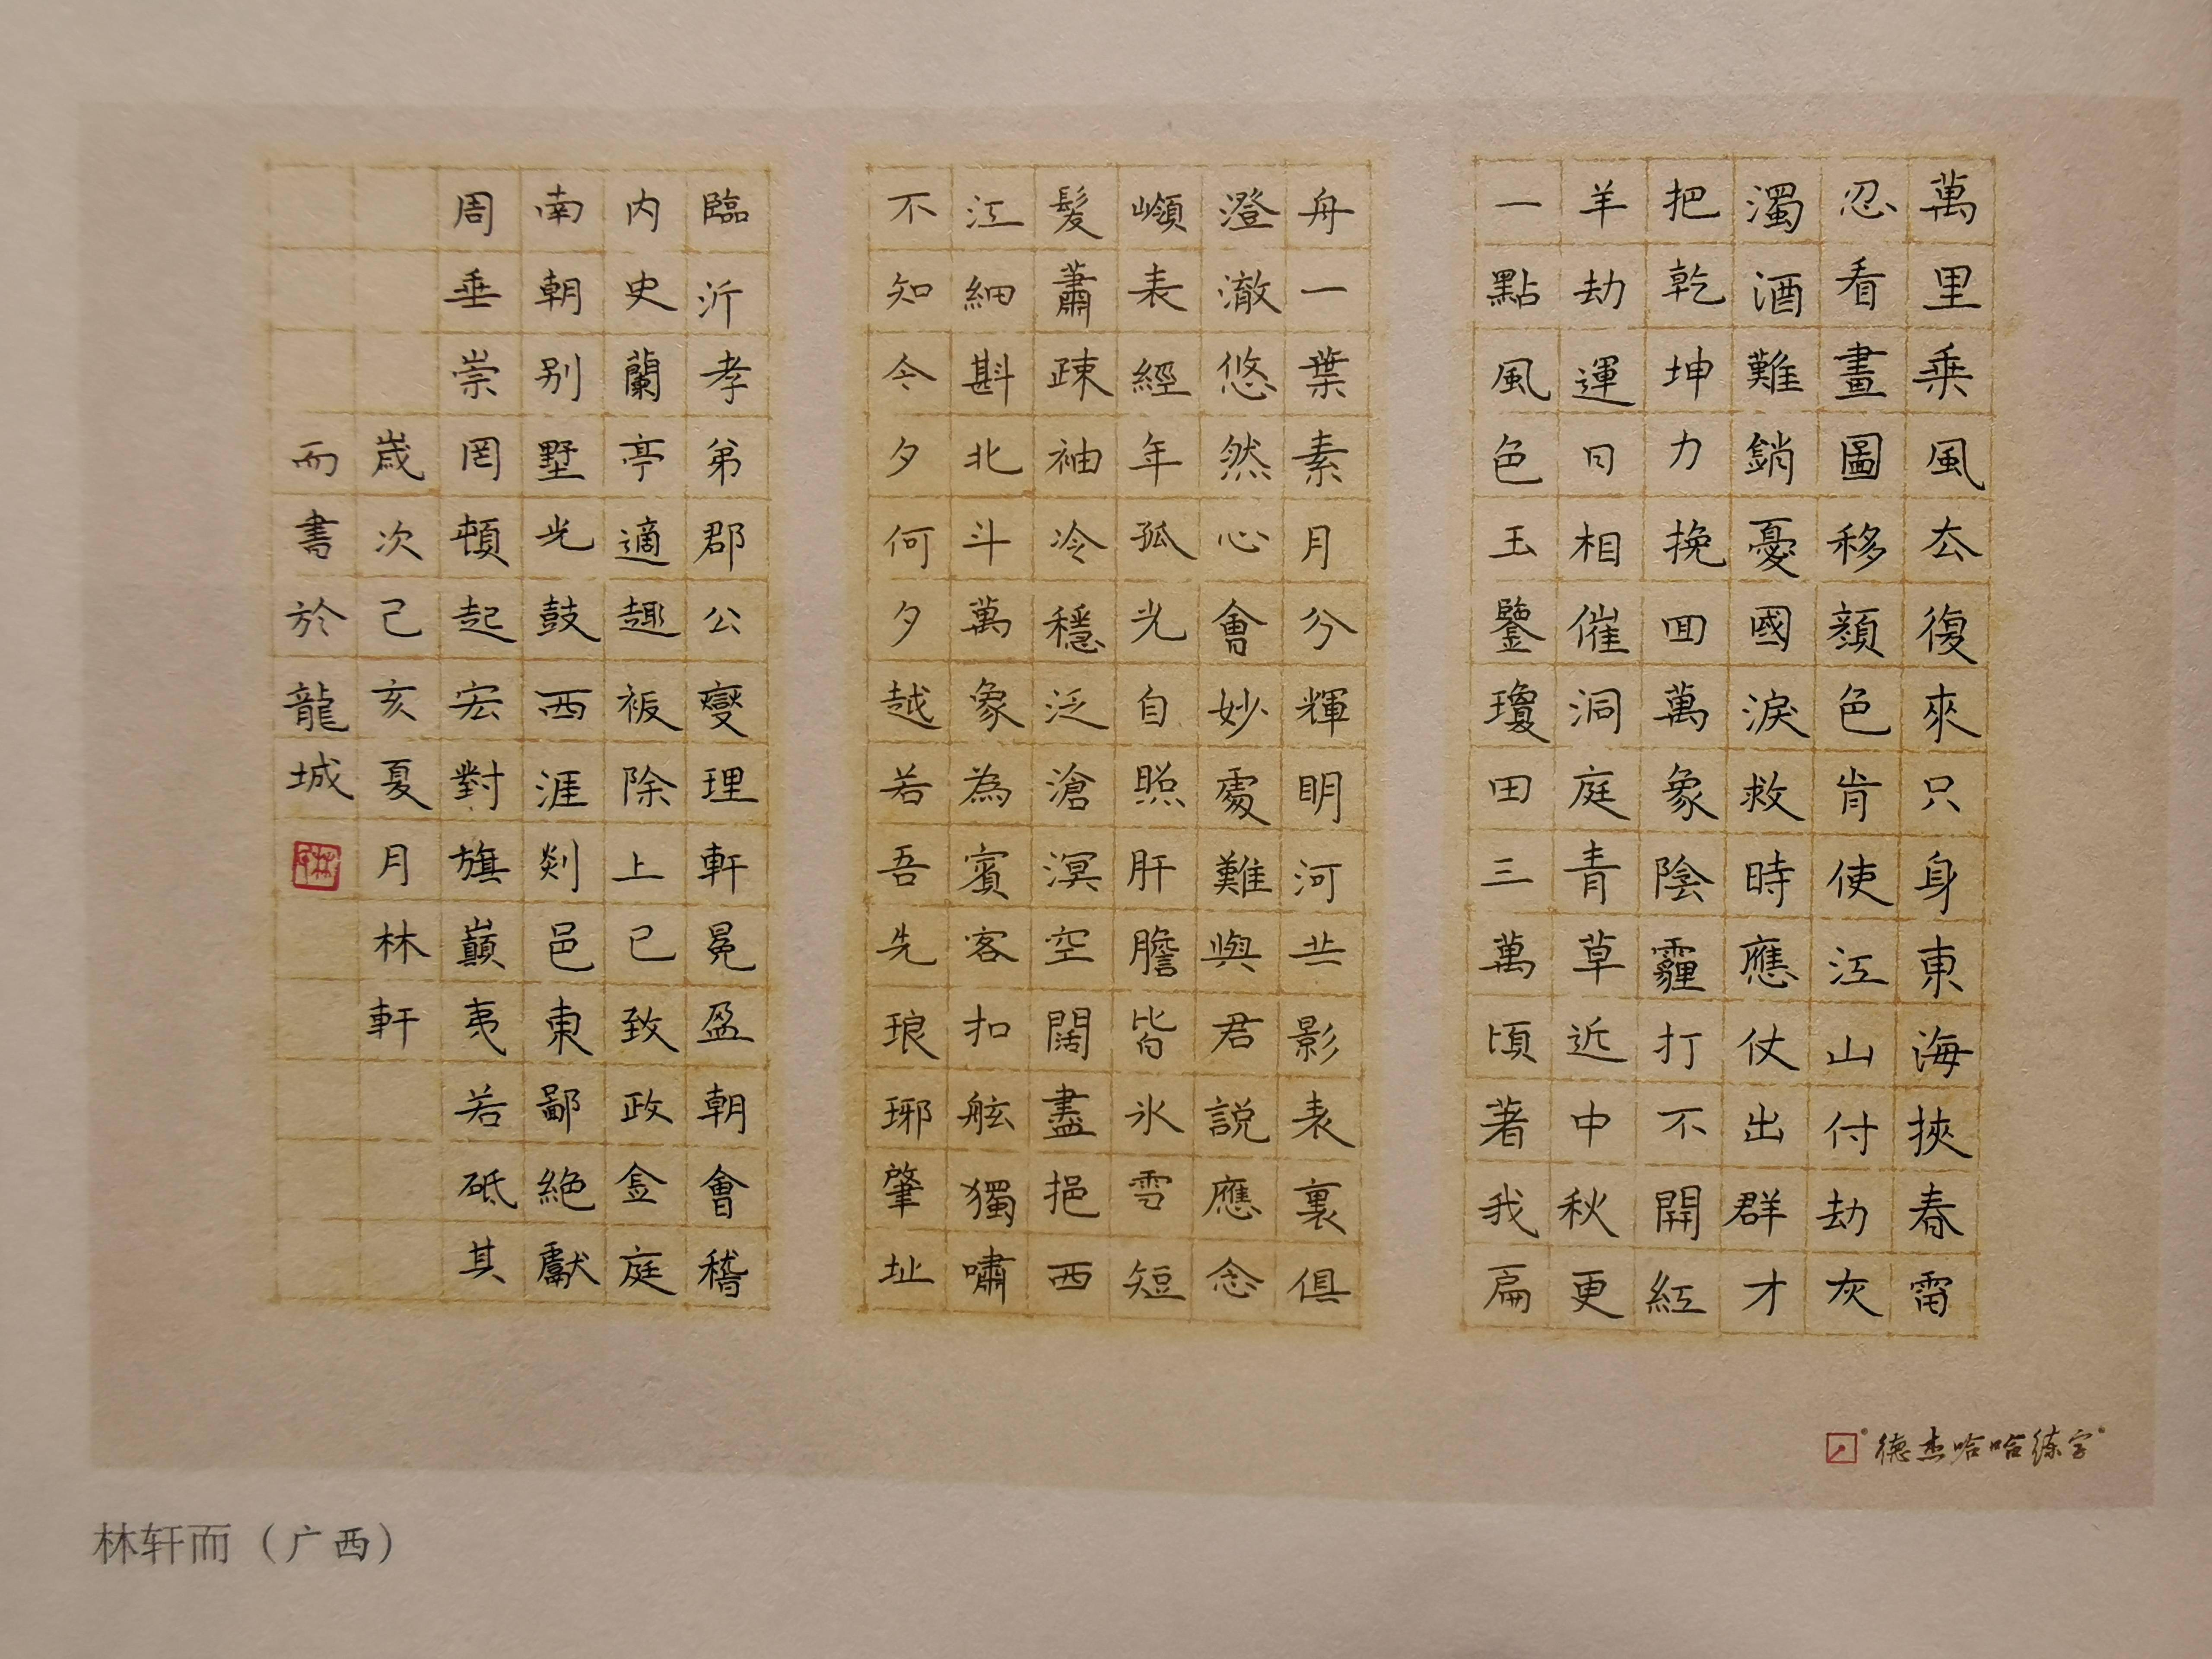 萬里乘風厺復來只身東海挾春雷
忍看畫圖移顔色肯使江山付劫灰
濁酒難銷憂國淚救時應仗出群才
把乾坤力挽回萬象陰霾打不開紅
羊劫運日相催洞庭青草近中秋更
一點風色玉鑒瓊田三萬頃著我扁
舟一葉素月分輝明河共影表裏俱
澄澈悠然心會妙處難與君說應念
嶺表經年孤光自照肝膽皆氷雪短
髮蕭疎袖冷穩泛滄溟空闊盡挹西
江細斟北斗萬象為賓客扣舷獨嘯
不知今夕何夕越若吾先琅琊肇址
臨沂孝弟郡公燮理軒冕盈朝會稽
内史蘭亭適趣祓除上巳致政金庭
南朝别墅光鼓西涯剡邑東鄙絶獻
周垂崇罔頓起宏對旗巔夷若砥其
歲次己亥夏月林軒
而書於龍城
德杰哈哈练字
林轩而（广西）